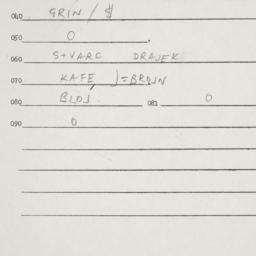 040 GRIN / $
050 O
060 S+VARC DRAJEK
070 KAFE, J=BROJN
080 BLOJ 081 O
090 O